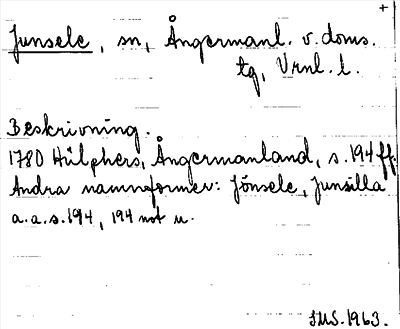 +
Junsele, sn, Ångermanl. v. doms.
tg, Vrnl. l.
Beskrivning.
1780 Hülphers, Ångermanland, s. 194 ff.
Andra namnformer: Jönsele, Junsilla
a.a.s. 194, 194 not u.
SMS. 1963.